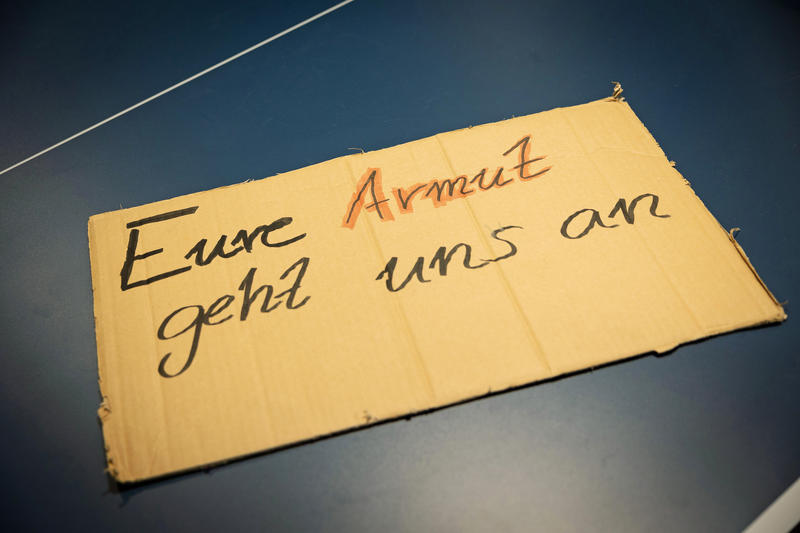 Eure Armut
geht uns an